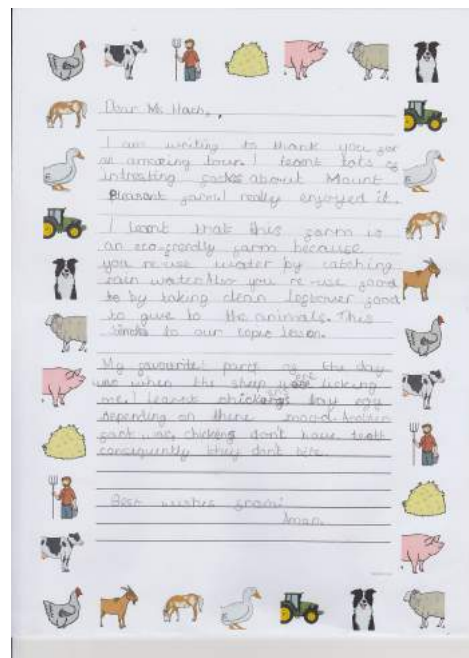 Dear Mr Hach,
I am writing to thank you for
an amazing tour. I learnt lots of
intresting facts about Mount
Pleasant farm. I really enjoyed it.
I learnt that this farm is
an eco-frendly farm because
you re-use water by catching
rain water. Also you re-use food
by taking clean leftover food
to give to the animals. This
links to our topic lesson.
My favourite part of the day
was when the sheep were licking
me. I learnt chickens lay egg
depending on there mood. Another
fact was, chickens don't have teeth
consequently they don't bite.
Best wishes from:
Aman